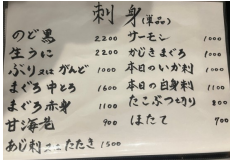 刺身(単品)
のど黒 2200
生うに 2200
ぶり又はがんど 1000
まぐろ中とろ 1600
まぐろ赤身 1100
甘海老 900
あじ刺又はたたき 1500
サーモン 1000
かじきまぐろ 1000
本日のいか刺 1000
本日の白身刺 1100
たこぶつ切り 800
ほたて 900